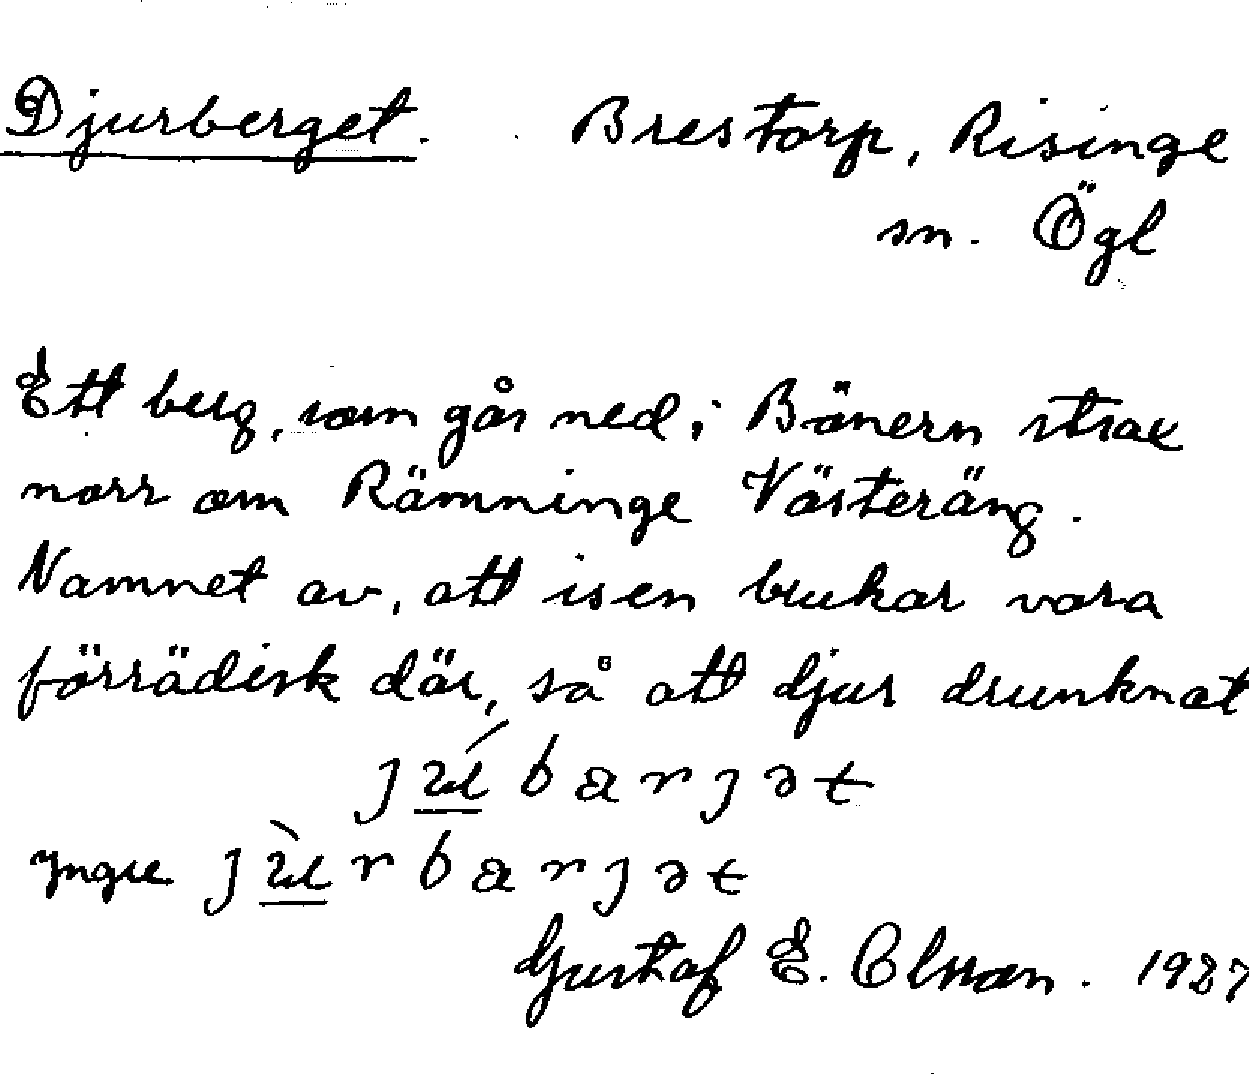 Djurberget. Brestorp, Risinge
sn. Ögl
Ett berg, som går ned i Bönern strax
norr om Rämninge Västeräng.
Namnet av, att isen brukar vara
förrädisk där, så att djur drunknat
yngre
Gustaf E. Olsson. 1927